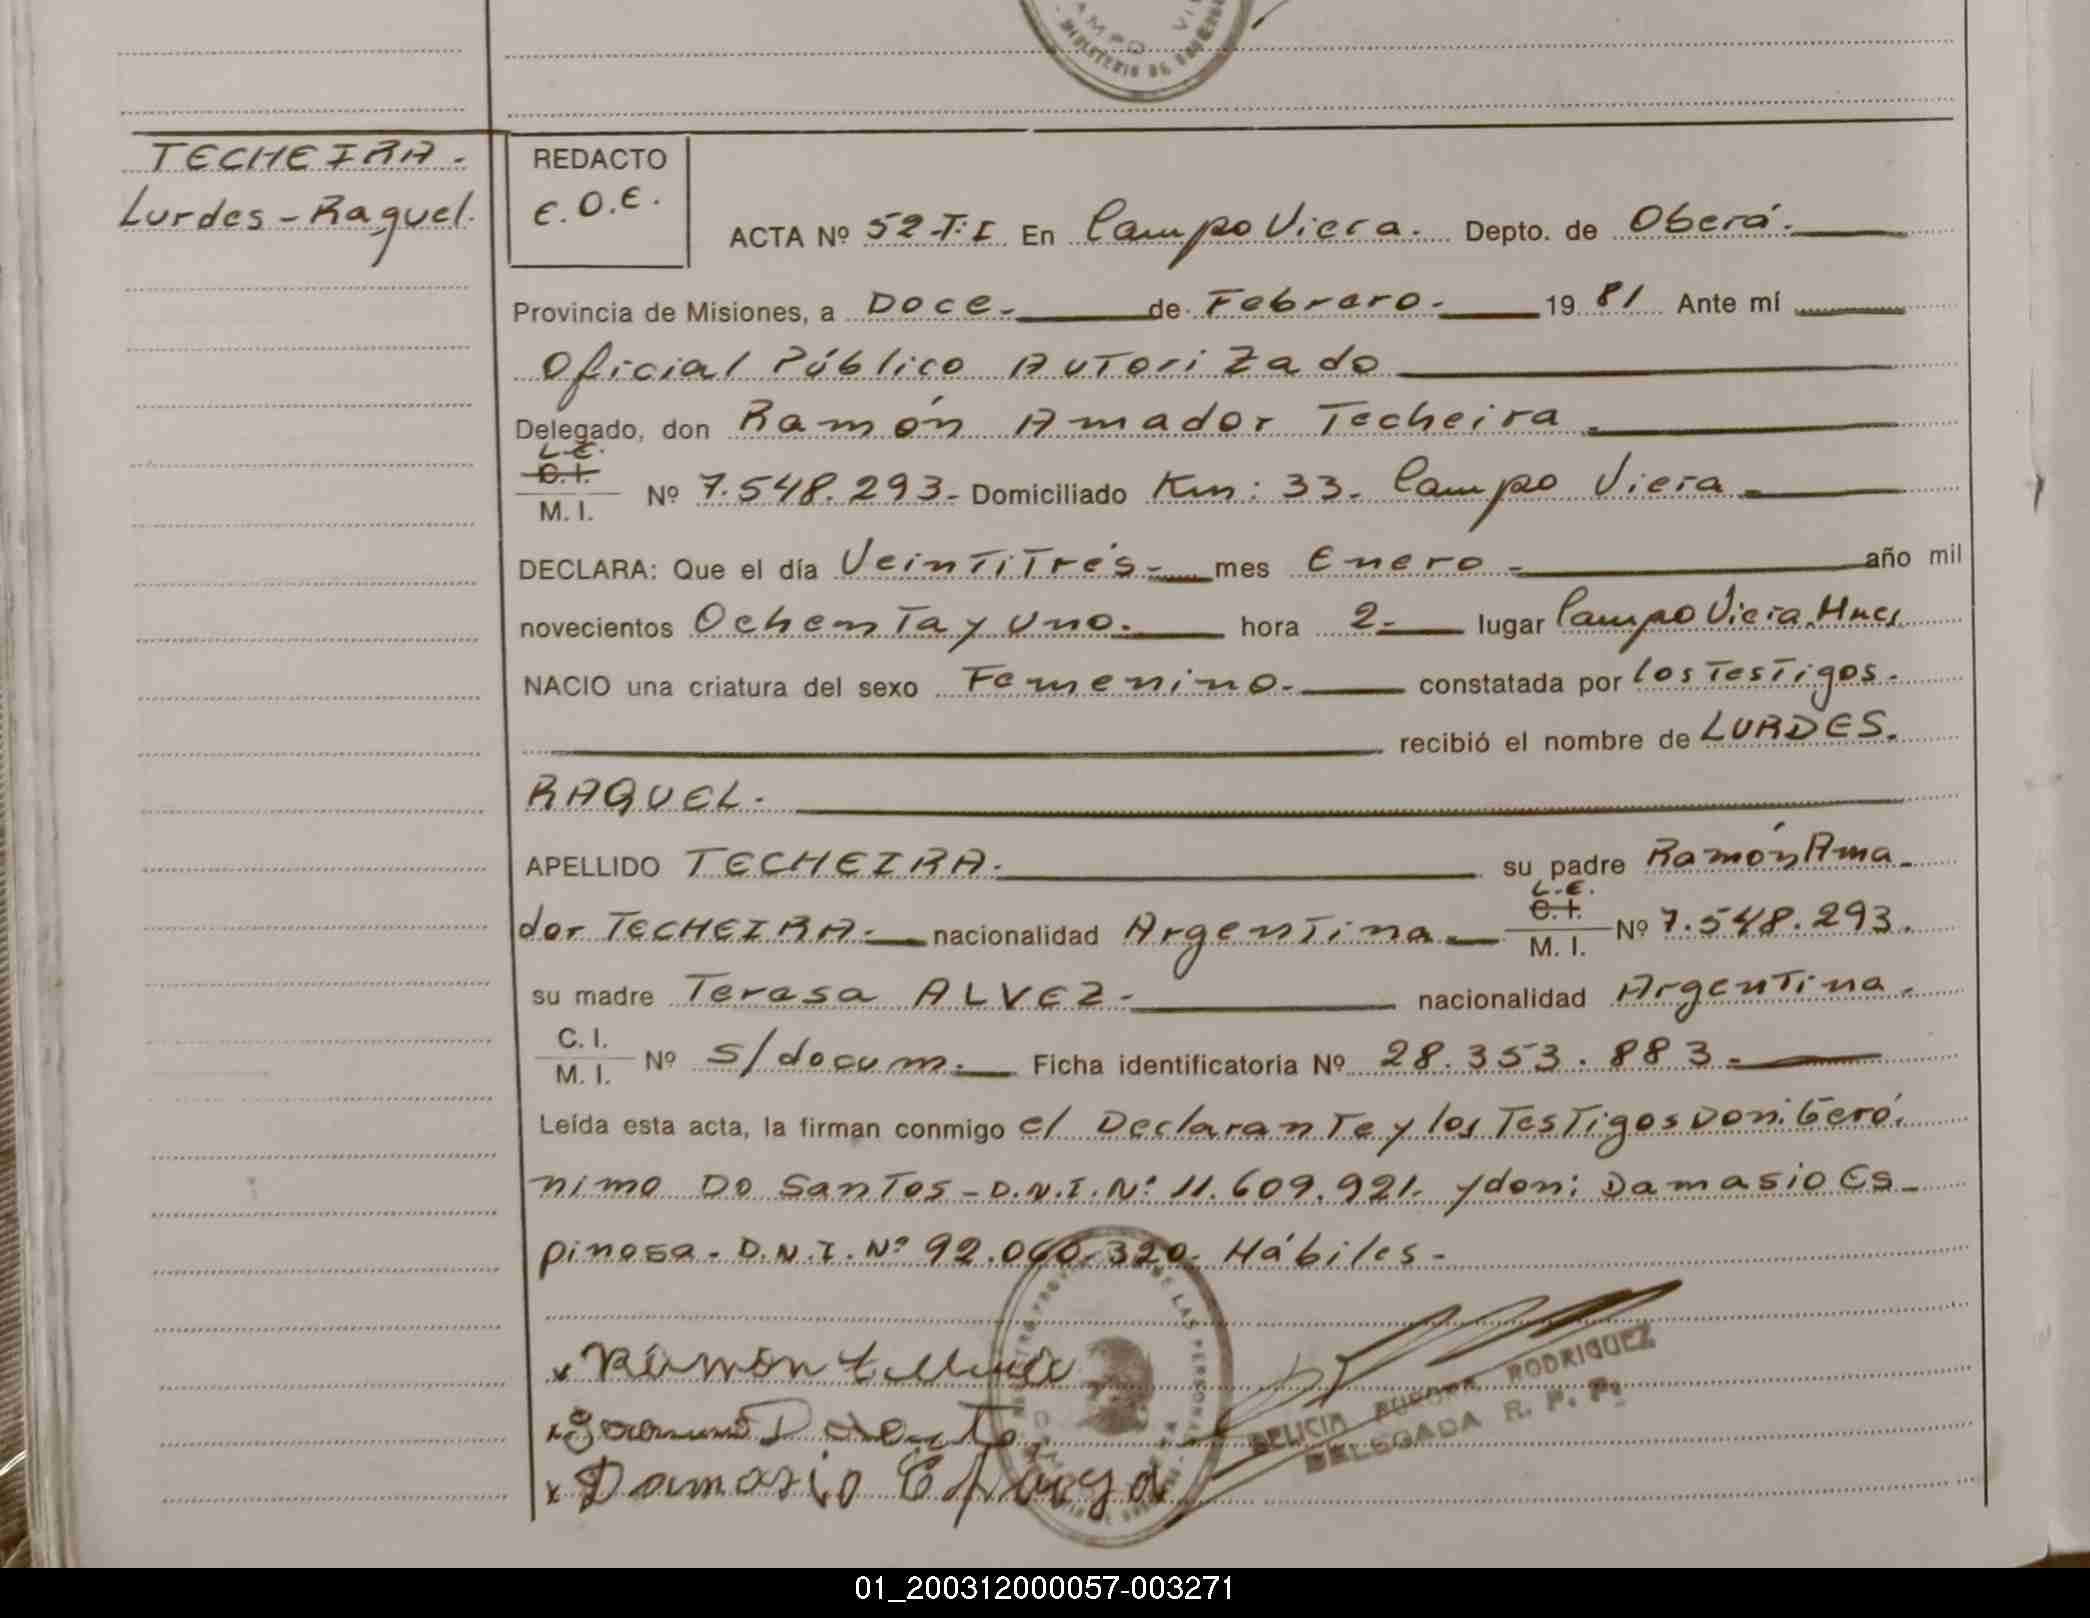 TECHEIRA.
Lurdes - Raquel.
REDACTO
E.O.E.
ACTA Nº 52-T:I En Campo Viera. Depto. de Oberá.
Provincia de Misiones, a Doce. de Febrero. 19 81 Ante mí
Oficial Público Autorizado
Delegado, don Ramón Amador Techeira.
L.E.
C.I.
M. I. Nº 7.548.293. Domiciliado Km: 33. Campo Viera
DECLARA: Que el día Veintitrés. mes Enero. año mil
novecientos Ochenta y Uno. hora 2. lugar Campo Viera. Mnes
NACIO una criatura del sexo Femenino. constatada por los Testigos.
recibió el nombre de LURDES.
RAQUEL.
APELLIDO TECHEIRA. su padre Ramón Ama
L.E.
C.I.
dor TECHEIRA. nacionalidad Argentina. M. I. Nº 7.548.293.
su madre Teresa ALVEZ. nacionalidad Argentina.
C. I.
M. I. Nº s/docum. Ficha identificatoria Nº 28.353.883.
Leída esta acta, la firman conmigo el Declarante y los Testigos Don: Geró
nimo Do Santos - D.N.I. Nº 11.609.921. y don: Damasio Es
pinosa. D.N.I. Nº 92.060.320. Hábiles.
x Ramón
x
x Damasio
DELICIA AURORA RODRIGUEZ
DELEGADA R. P. P.
01_200312000057-003271